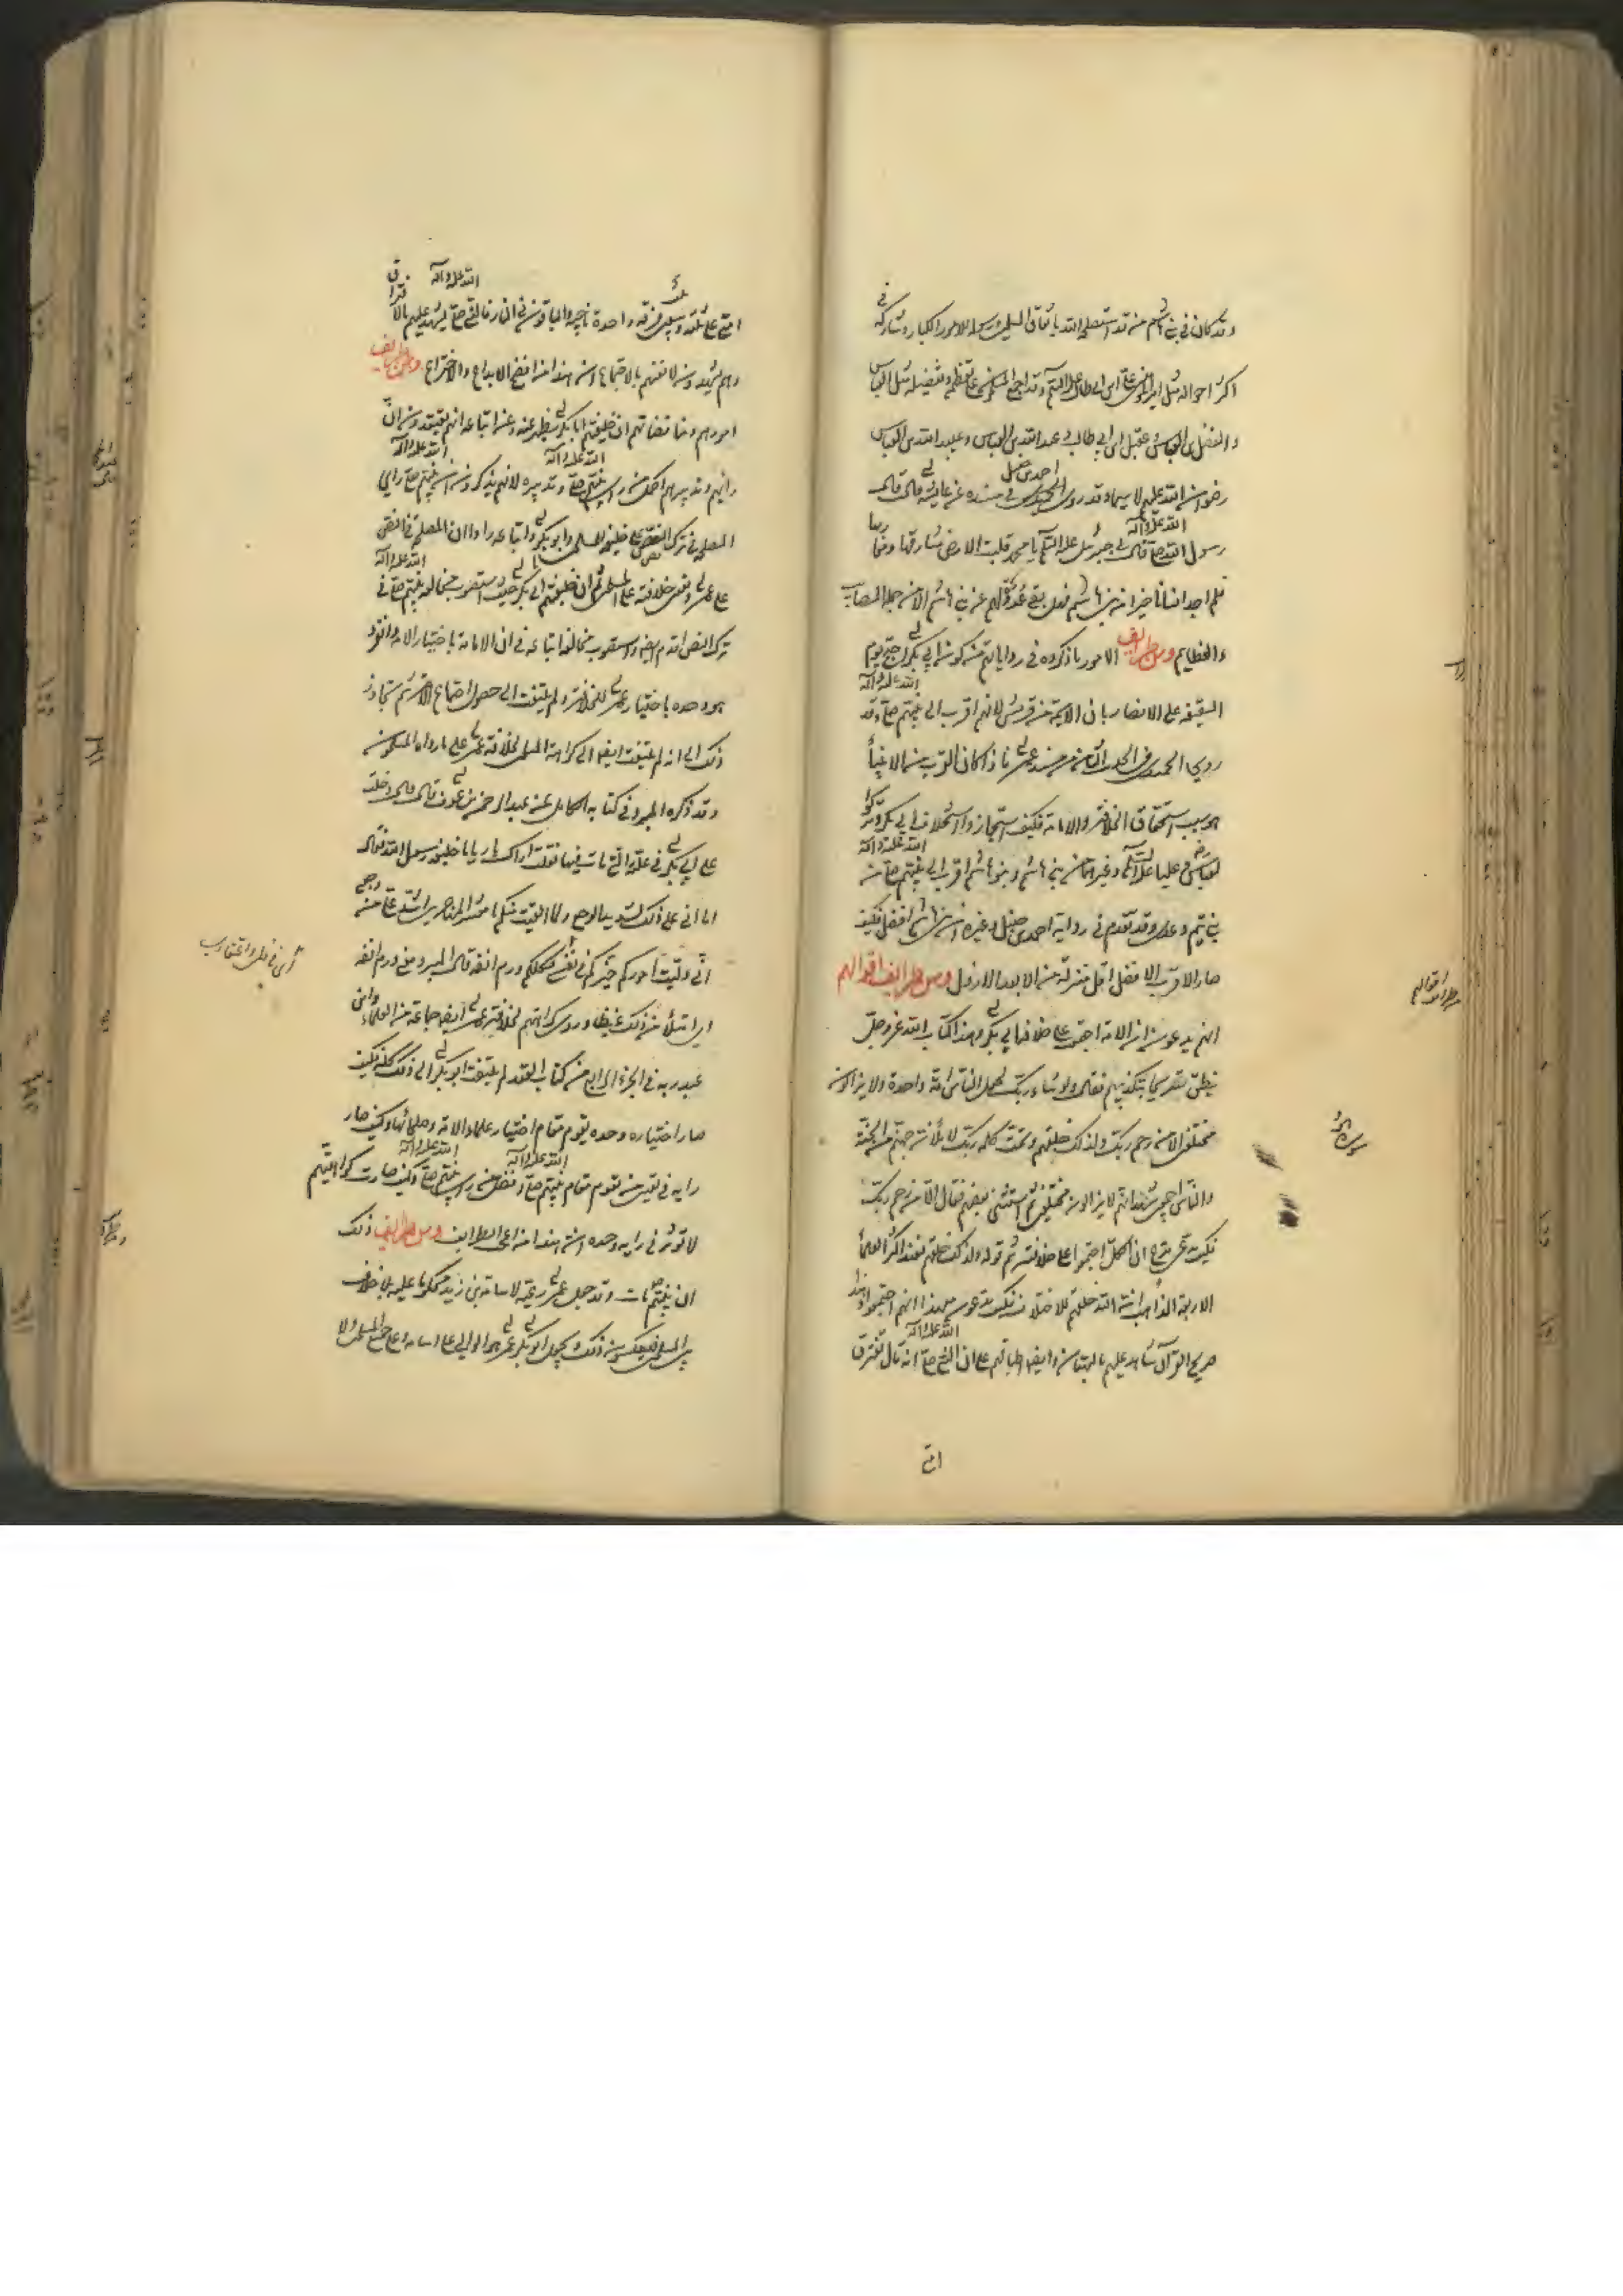 وقد كان في بني هاشم من قد استصلحه الله باتفاق المسلمين ورسوله للامور الكبار وشاركه في
اكثر احواله مثل امير المؤمنين علي ابن ابي طالب عليه السلم وقد اجمع المسلمون على تعظيمه وتفضيله مثل العباس
والفضل بن العباس وعقيل ابن ابي طالب وعبد الله بن العباس وعبيد الله بن العباس
رضوان الله عليهم لا سيما وقد روى احمد بن حنبل في مسنده عن عايشه قالت قال
رسول الله صلى الله عليه وآله قال لي جبرئيل عليه السلم يا محمد قلبت الارض مشارقها ومغاربها
فلم اجد انسانا خيرا من بني هاشم فهل بقي عذر لعدولهم عن بني هاشم الا من جملة المصايب
والعظايم ومن طرايف الامور ما ذكروه في رواياتهم من كون ابي بكر احتج يوم
السقيفه على الانصار بان الايمة من قريش لانهم اقرب الى نبيهم صلى الله عليه وآله وقد
روى الحميدي في الحديث الثامن من مسند عمر فاذا كان القرب من الانبياء
هو سبب استحقاق الخلافة والامامة فكيف استجازوا استخلاف ابي بكر وتركوا
العباس وعليا عليه السلم وغيرهما من بني هاشم وبنو هاشم اقرب الى نبيهم صلى الله عليه وآله من
بني تيم وعدي وقد تقدم في رواية احمد بن حنبل وغيره ان بني هاشم افضل فكيف
صار الاقرب الافضل اقل منزلة من الابعد الارذل ومن طرايف اقوالهم
انهم يدعون ان الامة اجتمعوا على خلافة ابي بكر وهذا كتاب الله عز وجل
ينطق تصريحا بتكذيبهم فقال ولو شاء ربك لجعل الناس امة واحدة ولا يزالون
مختلفين الا من رحم ربك ولذلك خلقهم وتمت كلمة ربك لاملأن جهنم من الجنة
والناس اجمعين فشهد انهم لا يزالون مختلفين ثم استثنى بعضهم فقال الا من رحم ربك
فكيف تدعي ان الكل اجتمعوا على خلافته ثم قوله ولذلك خلقهم فعند اكثر العلماء
الاربعة المذاهب ان الله خلقهم للاختلاف فكيف يدعون مع هذا انهم اجتمعوا وهذا
صريح القرآن شاهد عليهم بالبهتان وايضا اطباقهم على ان النبي صلى الله عليه وآله قال تفترق
امتي
امتي على ثلث وسبعين فرقه واحدة ناجيه والباقون في النار فالنبي صلى الله عليه وآله يشهد عليهم بالافتراق
وهم يشهدون لانفسهم بالاجتماع ان هذا من افضح الابداع والاختراع ومن طرايف
امورهم ومناقضاتهم ان خليفتهم ابا بكر يظهر عنه وعن اتباعه انهم يعتقدون ان
رايهم وتدبيرهم اكمل من راي نبيهم صلى الله عليه وآله وتدبيره لانهم يذكرون ان نبيهم صلى الله عليه وآله راى
المصلحة في ترك النص على خليفة المسلمين وابو بكر واتباعه راوا ان المصلحة في النص
على عمر ونص خلافته على المسلمين ثم ان خليفتهم ابي بكر حيث استصوب مخالفة نبيهم صلى الله عليه وآله في
ترك النص اقدم ايضا واستصوب مخالفة اتباعه في ان الامامة باختيار الامة وانفرد
هو وحده باختيار عمر للخلافة ولم يلتفت الى حصول اجتماع الامة ثم تجاوز
ذلك الى انه لم يلتفت ايضا الى كراهة المسلمين لخلافة عمر على ما رواه المسلمون
وقد ذكره المبرد في كتابه الكامل عن عبد الرحمن بن عوف قال دخلت
على ابي بكر في علته التي مات فيها فقلت اراك باريا يا خليفة رسول الله فقال
اما اني على ذلك لشديد الوجع ولما لقيت منكم يا معشر المهاجرين اشد علي من وجعي
اني وليت اموركم خيركم في نفسي فكلكم ورم انفه قال المبرد معنى ورم انفه
اي امتلأ من ذلك غيظا وروى كراهتهم لخلافة عمر ايضا جماعة من العلماء وابن
عبد ربه في الجزء الرابع من كتاب العقد لم يلتفت ابو بكر الى ذلك كله فكيف
صار اختياره وحده يقوم مقام اختيار علماء الامة وحلمائها وكيف صار
رايه في تعيين من يقوم مقام نبيهم صلى الله عليه وآله افضل من راي نبيهم صلى الله عليه وآله وكيف صارت كراهتهم
لا تؤثر في رايه وحده ان هذا من اعجب الطرايف ومن طرايف ذلك
ان نبيهم مات وقد جعل عمر رعية لاسامة بن زيد محكوما عليه بلا خلاف
بين المسلمين فيعكسون ذلك ويجعل ابو بكر عمر هو الوالي على اسامة وعلى جميع المسلمين ولا
طرايف اقوالهم